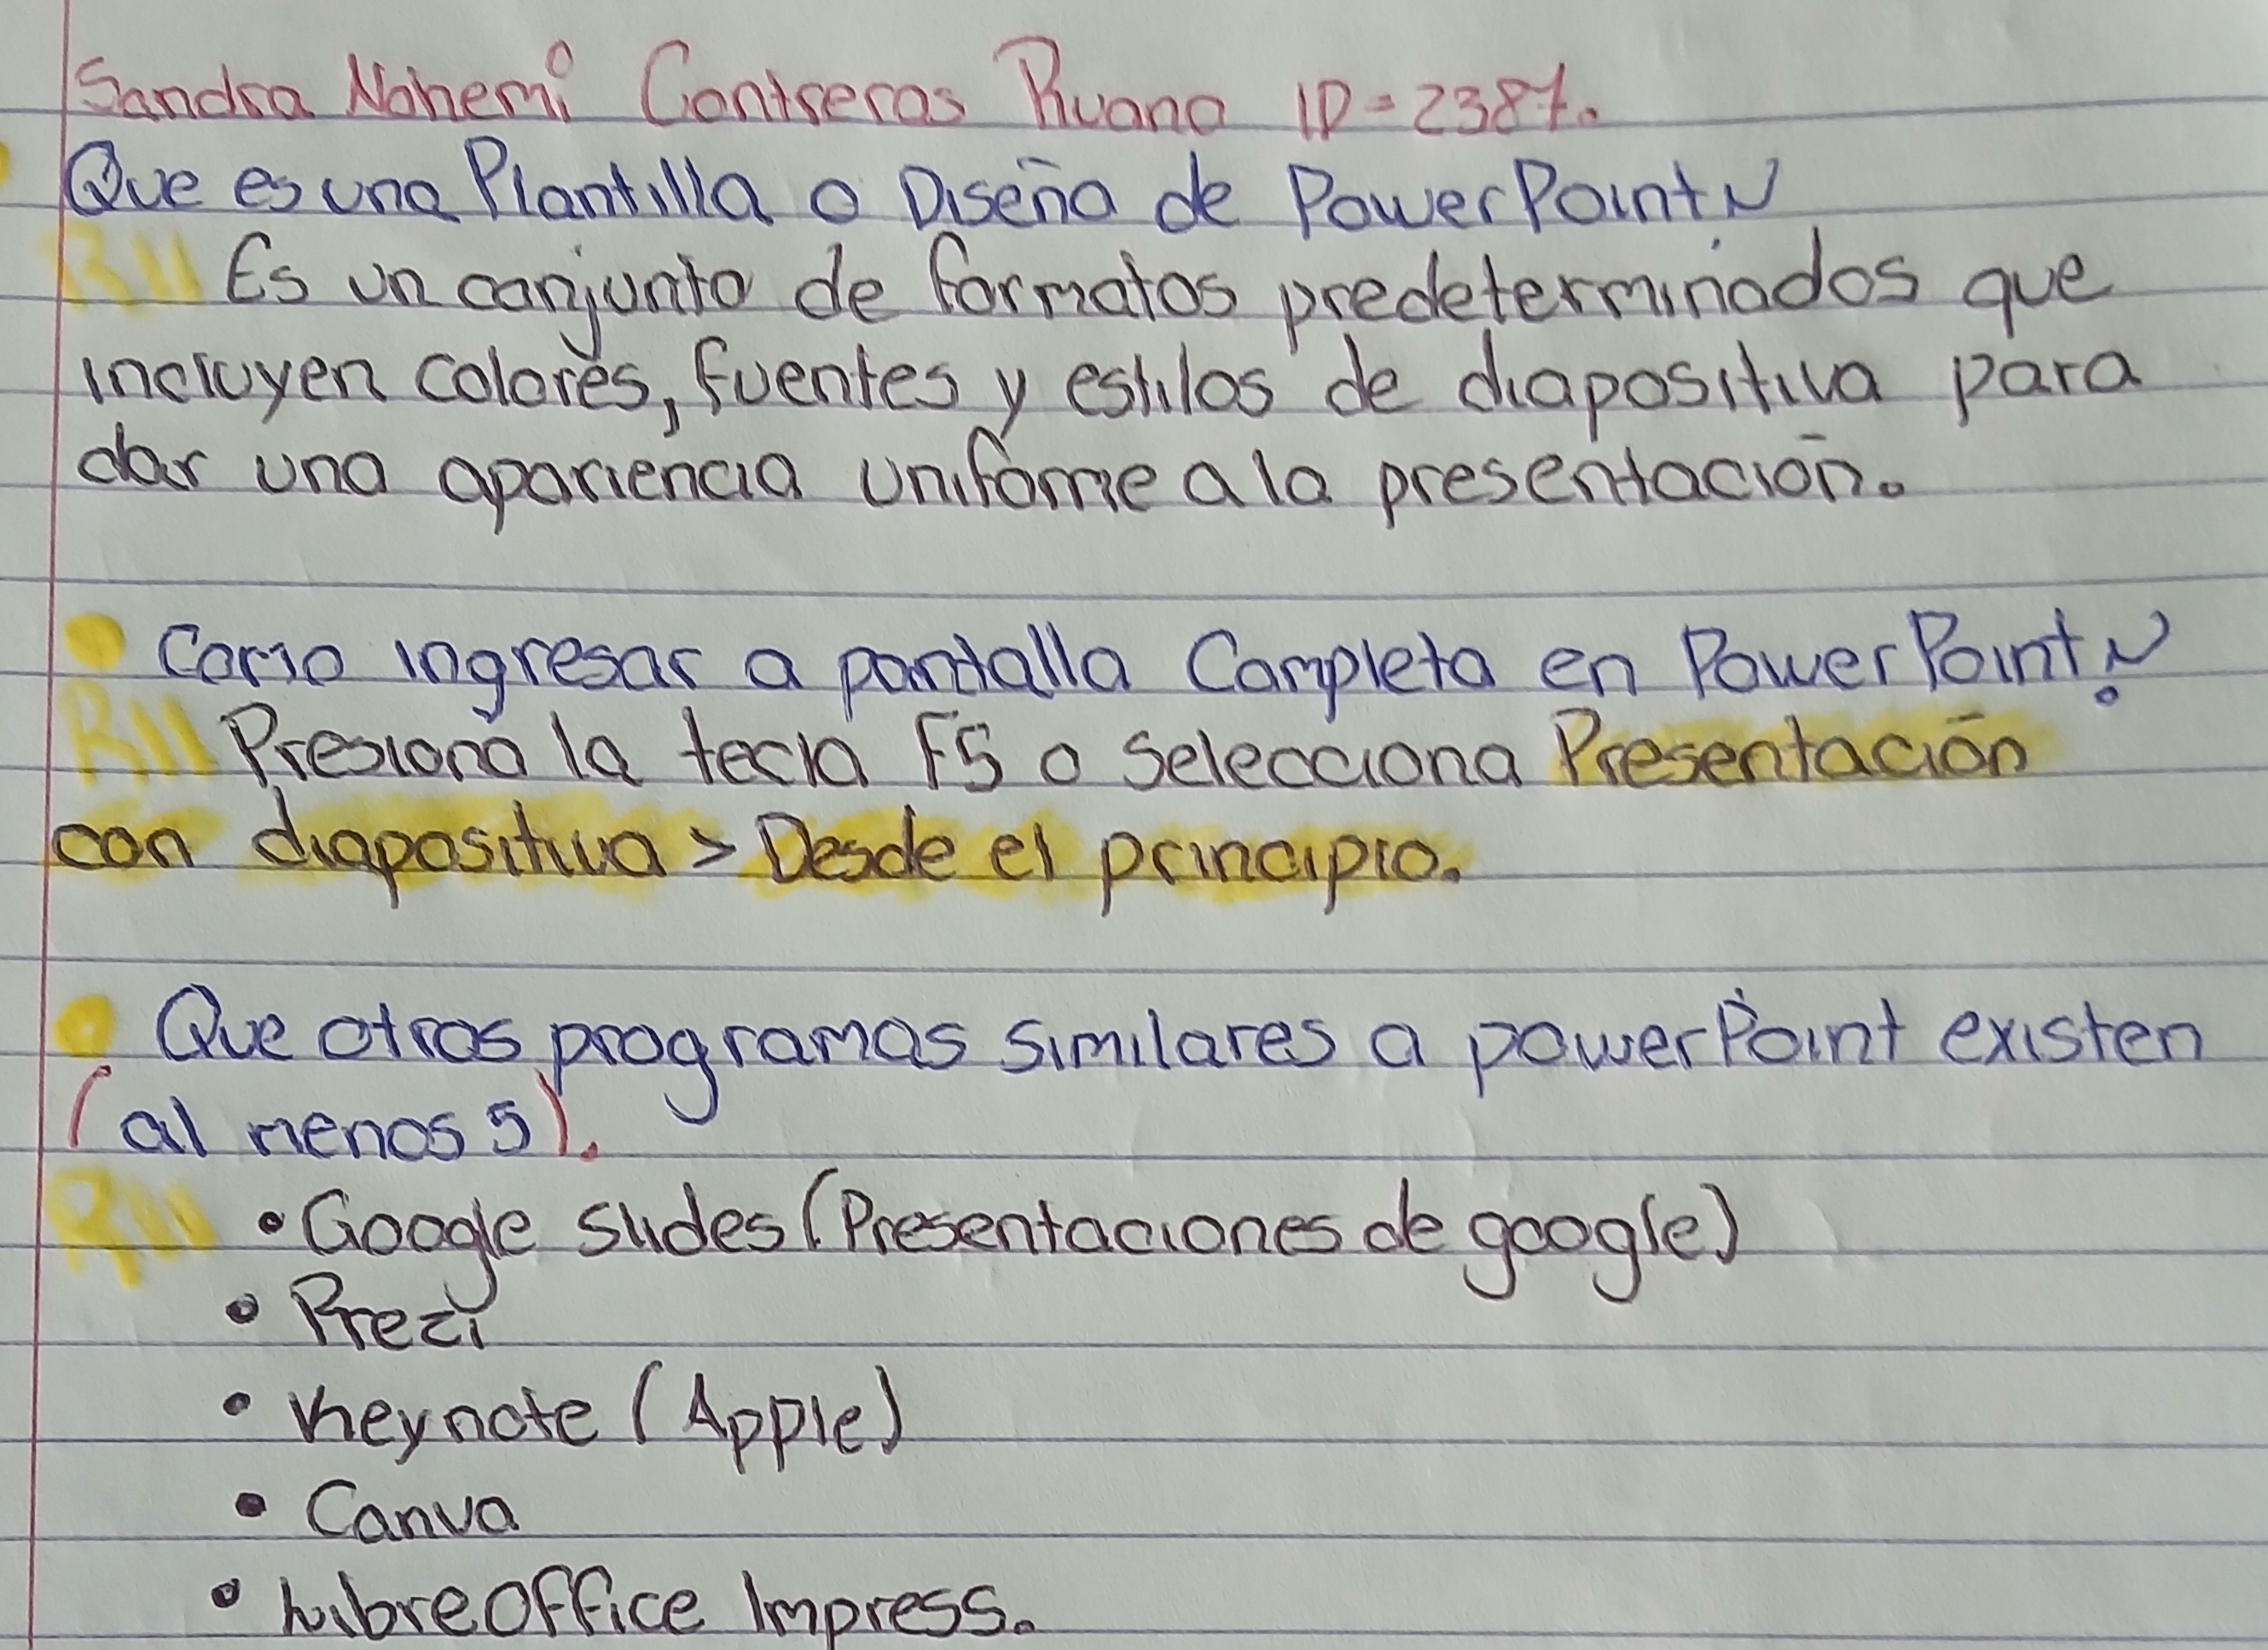 Sandra Nohemi Contreras Ruano ID=2387.
Que es una Plantilla o Diseño de PowerPoint?
R// Es un conjunto de formatos predeterminados que
incluyen colores, fuentes y estilos de diapositiva para
dar una apariencia uniforme a la presentación.
• Como ingresar a pantalla Completa en PowerPoint?
R// Presiona la tecla F5 o selecciona Presentación
con diapositiva > Desde el principio.
• Que otros programas similares a powerPoint existen
(al menos 5).
R// • Google slides (Presentaciones de google)
• Prezi
• Keynote (Apple)
• Canva
• LibreOffice Impress.